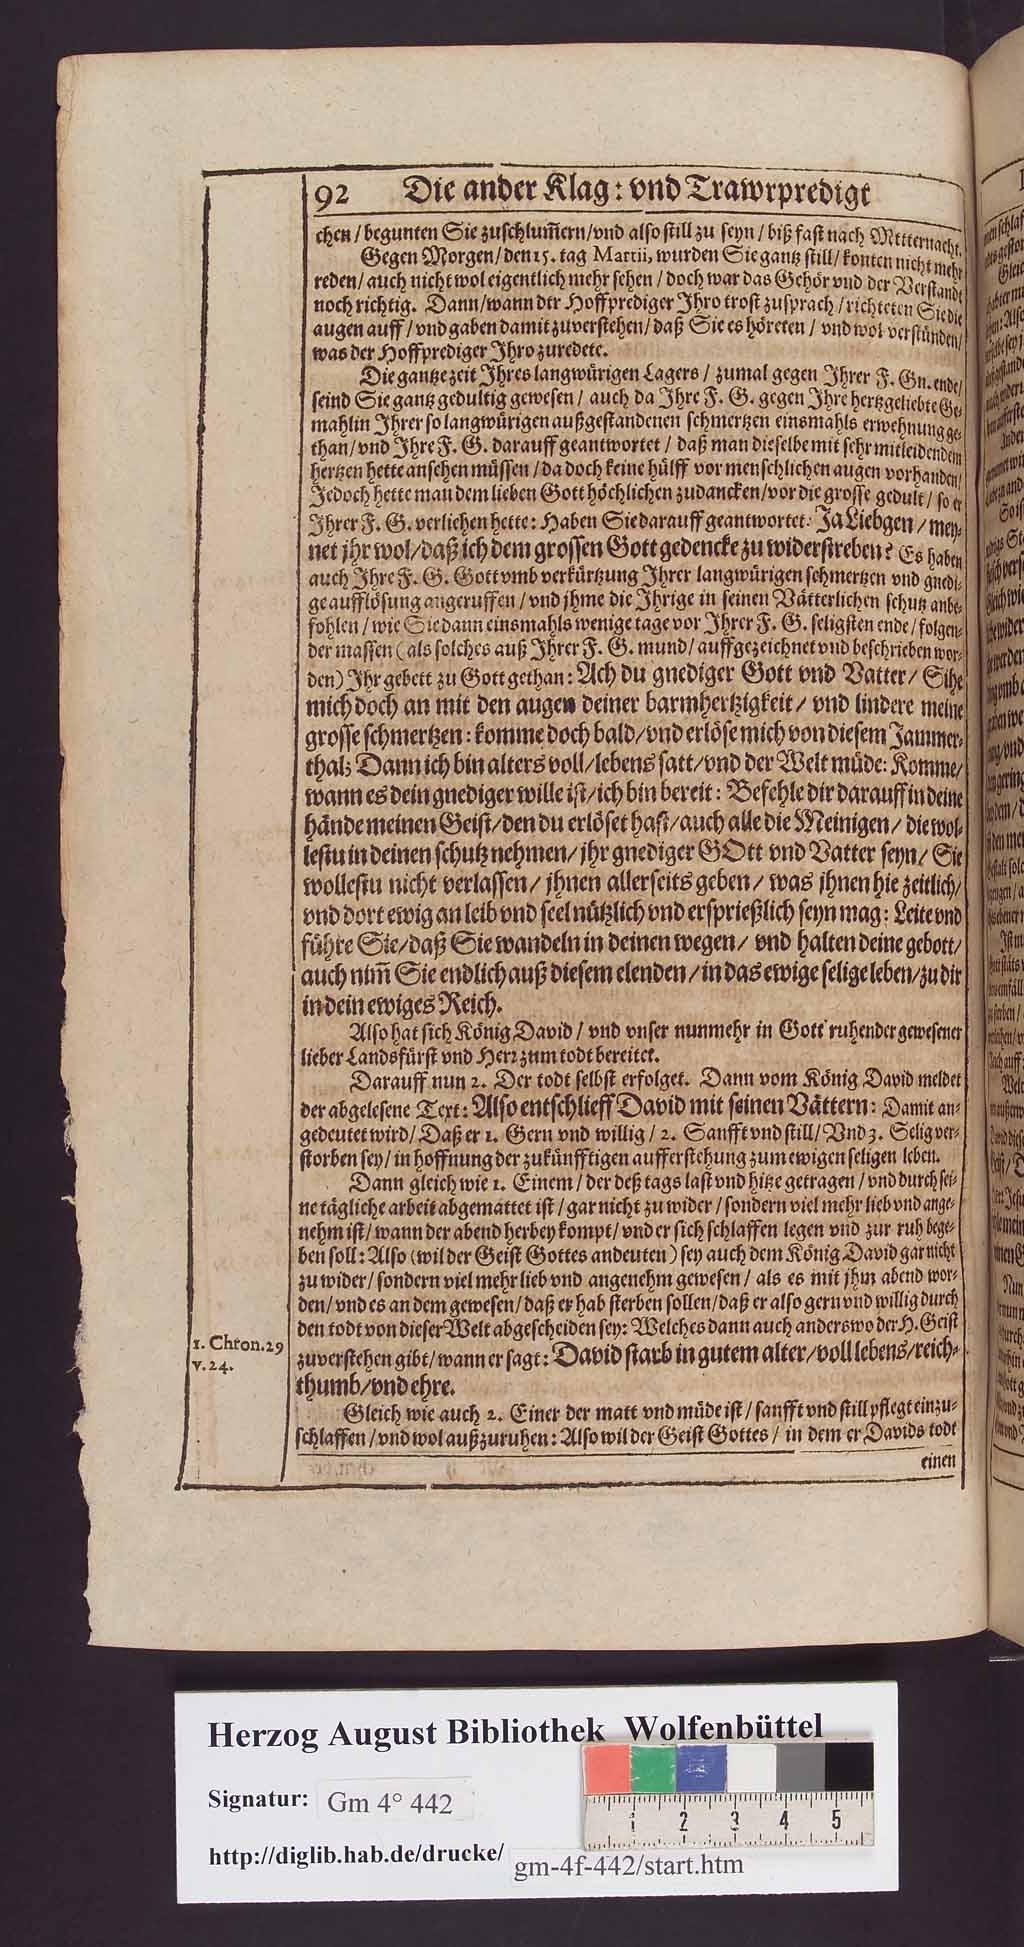 92 Die ander Klag: vnd Trawrpredigt
chen / begunten Sie zuschlum̃ern / vnd also still zu seyn / biß fast nach Mttternacht.
Gegen Morgen / den 15. tag Martii, wurden Sie gantz still / konten nicht mehr
reden / auch nicht wol eigentlich mehr sehen / doch war das Gehör vnd der Verstandt
noch richtig. Dann / wann dtr Hoffprediger Ihro trost zusprach / richteten Sie die
augen auff / vnd gaben damit zuverstehen / daß Sie es höreten / vnd wol verstünden /
was der Hoffprediger Ihro zuredete.
Die gantze zeit Ihres langwürigen Lagers / zumal gegen Ihrer F. Gn. ende /
seind Sie gantz gedultig gewesen / auch da Ihre F. G. gegen Ihre hertzgeliebte Ge-
mahlin Ihrer so langwürigen außgestandenen schmertzen einsmahls erwehnung ge-
than / vnd Ihre F. G. darauff geantwortet / daß man dieselbe mit sehr mitleidendem
hertzen hette ansehen müssen / da doch keine hülff vor menschlichen augen vorhanden /
Jedoch hette man dem lieben Gott höchlichen zudancken / vor die grosse gedult / so er
Ihrer F. G. verliehen hette: Haben Sie darauff geantwortet: Ja Liebgen / mey-
net jhr wol / daß ich dem grossen Gott gedencke zu widerstreben? Es haben
auch Ihre F. G. Gott vmb verkürtzung Ihrer langwürigen schmertzen vnd gnedi-
ge aufflösung angeruffen / vnd jhme die Ihrige in seinen Vätterlichen schutz anbe-
fohlen / wie Sie dann einsmahls wenige tage vor Ihrer F. G. seligsten ende / folgen-
der massen (als solches auß Ihrer F. G. mund / auffgezeichnet vnd beschrieben wor-
den) Ihr gebett zu Gott gethan: Ach du gnediger Gott vnd Vatter / Sihe
mich doch an mit den augen deiner barmhertzigkeit / vnd lindere meine
grosse schmertzen: komme doch bald / vnd erlöse mich von diesem Jammer-
thal; Dann ich bin alters voll / lebens satt / vnd der Welt müde: Komme /
wann es dein gnediger wille ist / ich bin bereit: Befehle dir darauff in deine
hände meinen Geist / den du erlöset hast / auch alle die Meinigen / die wol-
lestu in deinen schutz nehmen / jhr gnediger GOtt vnd Vatter seyn / Sie
wollestu nicht verlassen / jhnen allerseits geben / was jhnen hie zeitlich /
vnd dort ewig an leib vnd seel nützlich vnd ersprießlich seyn mag: Leite vnd
führe Sie / daß Sie wandeln in deinen wegen / vnd halten deine gebott /
auch nim̃ Sie endlich auß diesem elenden / in das ewige selige leben / zu dir
in dein ewiges Reich.
Also hat sich König David / vnd vnser nunmehr in Gott ruhender gewesener
lieber Landsfürst vnd Herr zum todt bereitet.
Darauff nun 2. Der todt selbst erfolget. Dann vom König David meldet
der abgelesene Text: Also entschlieff David mit seinen Vättern: Damit an-
gedeutet wird / Daß er 1. Gern vnd willig / 2. Sanfft vnd still / Vnd 3. Selig ver-
storben sey / in hoffnung der zukünfftigen aufferstehung zum ewigen seligen leben.
Dann gleich wie 1. Einem / der deß tags last vnd hitze getragen / vnd durch sei-
ne tägliche arbeit abgemattet ist / gar nicht zu wider / sondern viel mehr lieb vnd ange-
nehm ist / wann der abend herbey kompt / vnd er sich schlaffen legen vnd zur ruh bege-
ben soll: Also (wil der Geist Gottes andeuten) sey auch dem König David gar nicht
zu wider / sondern viel mehr lieb vnd angenehm gewesen / als es mit jhm abend wor-
den / vnd es an dem gewesen / daß er hab sterben sollen / daß er also gern vnd willig durch
den todt von dieser Welt abgescheiden sey: Welches dann auch anderswo der H. Geist
zuverstehen gibt / wann er sagt: David starb in gutem alter / voll lebens / reich-
thumb / vnd ehre.
1. Chron. 29
v. 24.
Gleich wie auch 2. Einer der matt vnd müde ist / sanfft vnd still pflegt einzu-
schlaffen / vnd wol außzuruhen: Also wil der Geist Gottes / in dem er Davids todt
einen
Herzog August Bibliothek Wolfenbüttel
Signatur: Gm 4° 442
http://diglib.hab.de/drucke/ gm-4f-442/start.htm
1 2 3 4 5